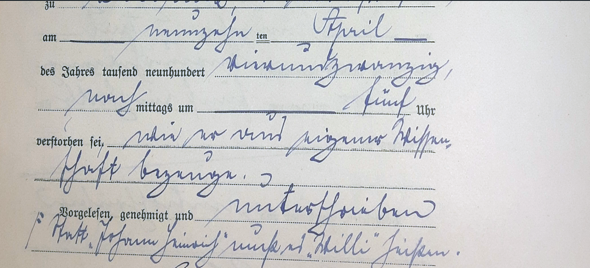 zu
am neunzehn ten April
des Jahres tausend neunhundert vierundzwanzig,
nach mittags um fünf Uhr
verstorben sei, wie er aus eigener Wissen-
schaft bezeuge.
Vorgelesen, genehmigt und unterschrieben
Statt „Johann Heinrich" muß es „Willi" heißen.